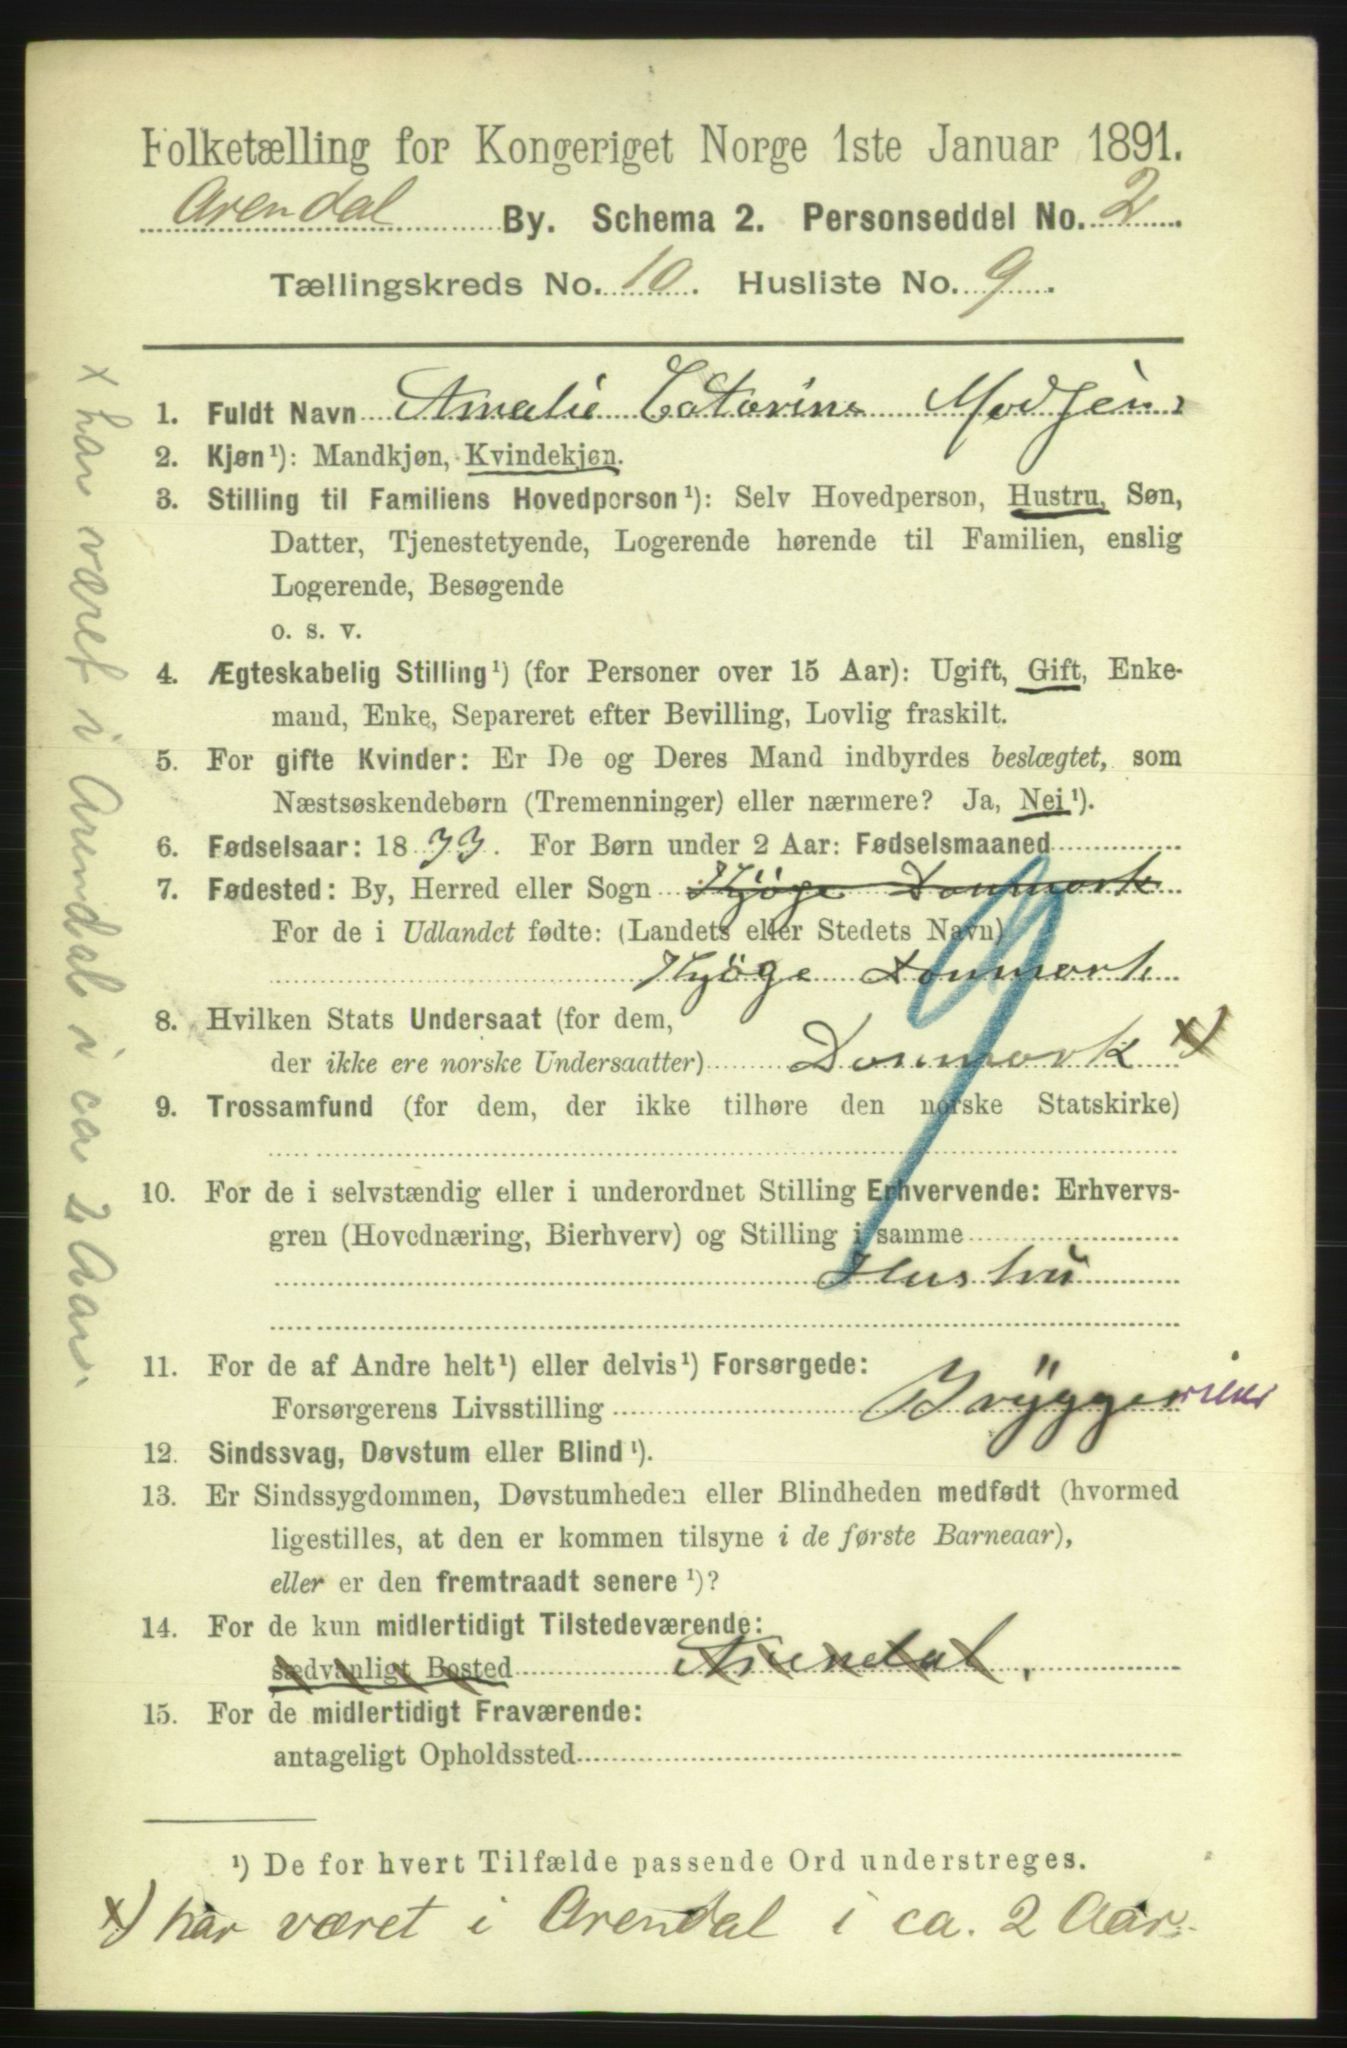 Folketælling for Kongeriget Norge 1ste Januar 1891.
Arendal By. Schema 2. Personseddel No. 2.
Tællingskreds No. 10. Husliste No. 9.
1. Fuldt Navn Amalie Catarine Madsen
2. Kjøn¹): Mandkjøn, Kvindekjøn.
3. Stilling til Familiens Hovedperson¹): Selv Hovedperson, Hustru, Søn,
Datter, Tjenestetyende, Logerende hørende til Familien, enslig
Logerende, Besøgende
o. s. v.
4. Ægteskabelig Stilling¹) (for Personer over 15 Aar): Ugift, Gift, Enke-
mand, Enke, Separeret efter Bevilling, Lovlig fraskilt.
5. For gifte Kvinder: Er De og Deres Mand indbyrdes beslægtet, som
Næstsøskendebørn (Tremenninger) eller nærmere? Ja, Nei¹).
6. Fødselsaar: 1833. For Børn under 2 Aar: Fødselsmaaned
7. Fødested: By, Herred eller Sogn Kjøge Danmark
For de i Udlandet fødte: (Landets eller Stedets Navn)
Kjøge Danmark
8. Hvilken Stats Undersaat (for dem,
der ikke ere norske Undersaatter) Danmark x)
9. Trossamfund (for dem, der ikke tilhøre den norske Statskirke)
10. For de i selvstændig eller i underordnet Stilling Erhvervende: Erhvervs-
gren (Hovednæring, Bierhverv) og Stilling i samme
Hustru
11. For de af Andre helt¹) eller delvis¹) Forsørgede:
Forsørgerens Livsstilling Brygger
12. Sindssvag, Døvstum eller Blind¹).
13. Er Sindssygdommen, Døvstumheden eller Blindheden medfødt (hvormed
ligestilles, at den er kommen tilsyne i de første Barneaar),
eller er den fremtraadt senere¹)?
14. For de kun midlertidigt Tilstedeværende:
sædvanligt Bosted Arendal.
15. For de midlertidigt Fraværende:
antageligt Opholdssted
¹) De for hvert Tilfælde passende Ord understreges.
x) har været i Arendal i ca. 2 Aar.
x har været i Arendal i ca 2 Aar.
9